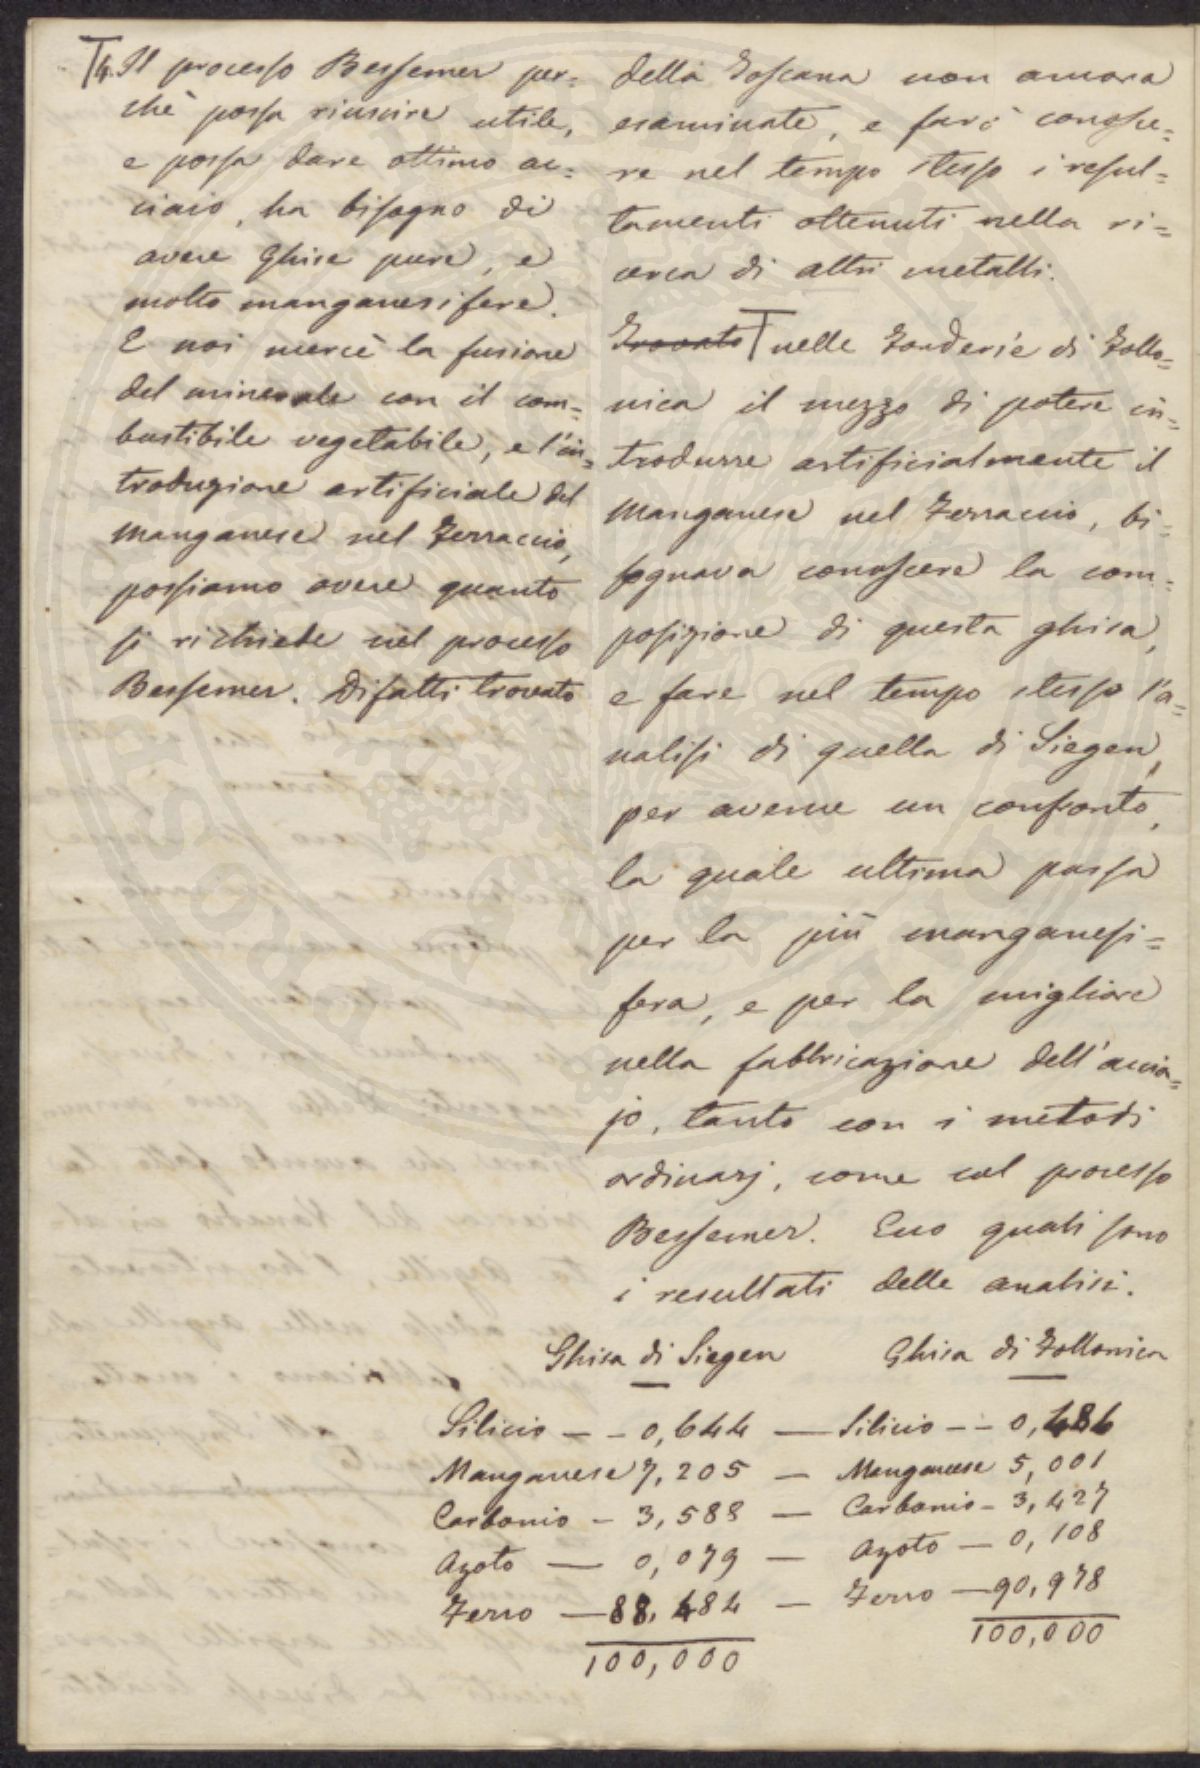 T4. Il processo Bessemer per=
chè possa riuscire utile,
e possa dare ottimo ac=
ciaio, ha bisogno di
avere Ghise pure, e
molto manganesifere.
E noi mercè la fusione
del minerale con il com=
bustibile vegetabile, e l'in=
troduzione artificiale del
manganese nel Ferraccio,
possiamo avere quanto
si richiede nel processo
Bessemer. Difatti trovato
della Toscana non ancora
esaminate, e farò conosce=
re nel tempo stesso i resul=
tamenti ottenuti nella ri=
cerca di altri metalli.
Trovato T nelle Fonderie di Follo=
nica il mezzo di potere in=
trodurre artificialmente il
manganese nel Ferraccio, bi=
sognava conoscere la com=
posizione di questa ghisa,
e fare nel tempo stesso l'a=
nalisi di quella di Siegen,
per averne un confronto,
la quale ultima passa
per la più manganesi=
fera, e per la migliore
nella fabbricazione dell'accia=
jo, tanto con i metodi
ordinarj, come col processo
Bessemer. Ecco quali sono
i resultati delle analisi.
Ghisa di Siegen Ghisa di Follonica
Silicio — – 0,644 — Silicio – – 0,486
Manganese 7,205 — Manganese 5,001
Carbonio – 3,588 — Carbonio – 3,427
Azoto — 0,079 — Azoto — 0,108
Ferro — 88,484 — Ferro — 90,978
100,000 100,000